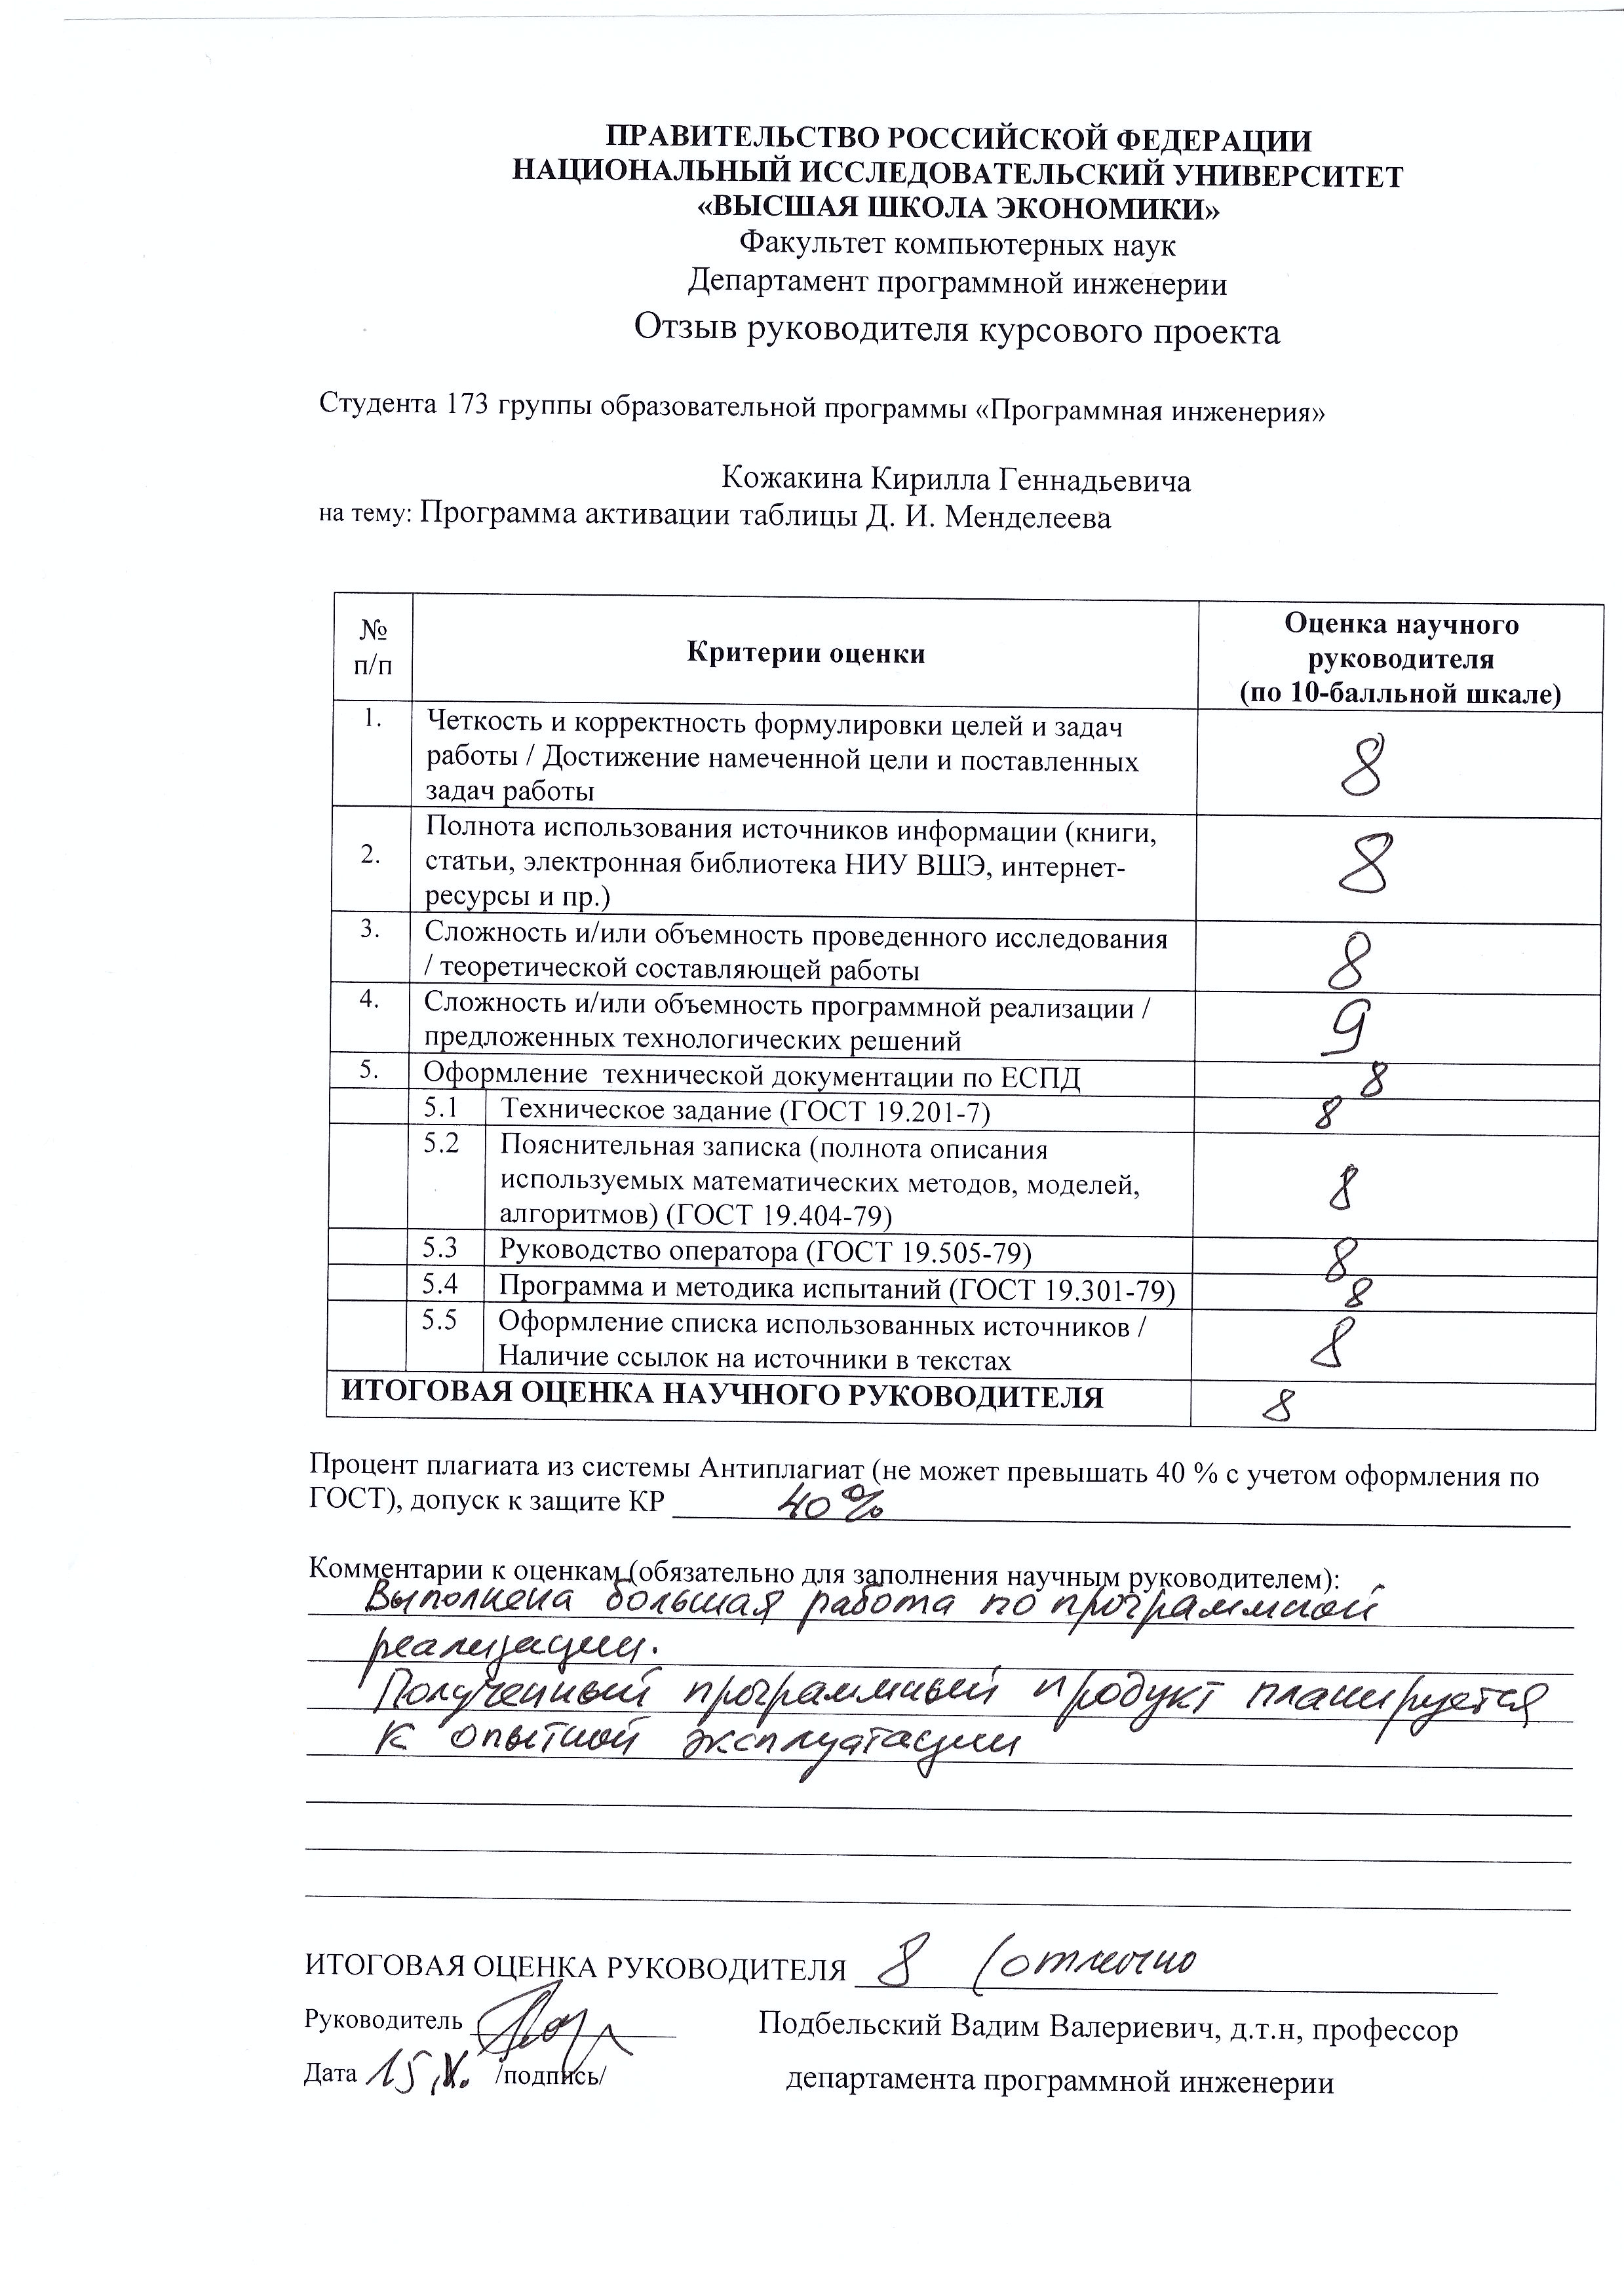 ПРАВИТЕЛЬСТВО РОССИЙСКОЙ ФЕДЕРАЦИИ
НАЦИОНАЛЬНЫЙ ИССЛЕДОВАТЕЛЬСКИЙ УНИВЕРСИТЕТ
«ВЫСШАЯ ШКОЛА ЭКОНОМИКИ»
Факультет компьютерных наук
Департамент программной инженерии
Отзыв руководителя курсового проекта
Студента 173 группы образовательной программы «Программная инженерия»
Кожакина Кирилла Геннадьевича
на тему: Программа активации таблицы Д. И. Менделеева
№
п/п
Критерии оценки
Оценка научного
руководителя
(по 10-балльной шкале)
1.
Четкость и корректность формулировки целей и задач
работы / Достижение намеченной цели и поставленных
задач работы
8
2.
Полнота использования источников информации (книги,
статьи, электронная библиотека НИУ ВШЭ, интернет-
ресурсы и пр.)
8
3.
Сложность и/или объемность проведенного исследования
/ теоретической составляющей работы
8
4.
Сложность и/или объемность программной реализации /
предложенных технологических решений
9
5. Оформление технической документации по ЕСПД 8
5.1 Техническое задание (ГОСТ 19.201-7) 8
5.2
Пояснительная записка (полнота описания
используемых математических методов, моделей,
алгоритмов) (ГОСТ 19.404-79)
8
5.3 Руководство оператора (ГОСТ 19.505-79) 8
5.4 Программа и методика испытаний (ГОСТ 19.301-79) 8
5.5
Оформление списка использованных источников /
Наличие ссылок на источники в текстах
8
ИТОГОВАЯ ОЦЕНКА НАУЧНОГО РУКОВОДИТЕЛЯ 8
Процент плагиата из системы Антиплагиат (не может превышать 40 % с учетом оформления по
ГОСТ), допуск к защите КР 40%
Комментарии к оценкам (обязательно для заполнения научным руководителем):
Выполнена большая работа по программной
реализации.
Полученный программный продукт планируется
к опытной эксплуатации
ИТОГОВАЯ ОЦЕНКА РУКОВОДИТЕЛЯ 8 (отлично
Руководитель Подбельский Вадим Валериевич, д.т.н, профессор
Дата 15.V. /подпись/ департамента программной инженерии